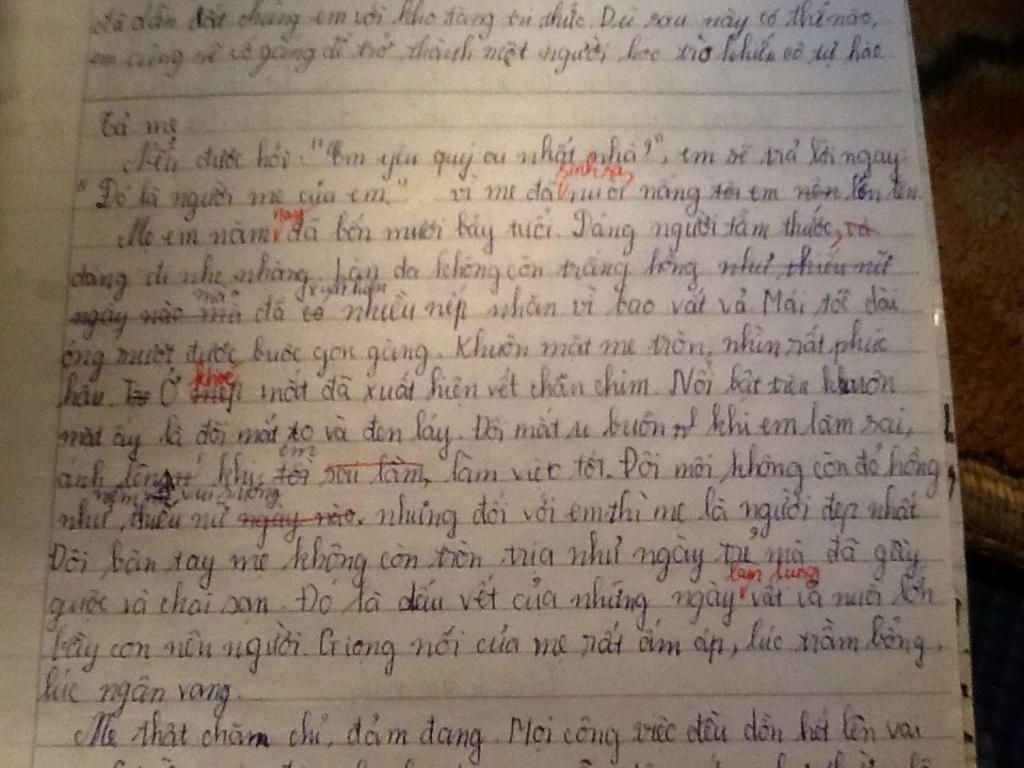 đã dẫn dắt chúng em với kho tàng tri thức. Dù sau này có thế nào,
em cũng sẽ cố gắng để trở thành một người học trò khiến cô tự hào.
Tả mẹ
Nếu được hỏi: "Em yêu quý ai nhất nhà?", em sẽ trả lời ngay:
sinh ra,
"Đó là người mẹ của em." vì mẹ đã nuôi nấng tôi em nên lớn lên.
nay
Mẹ em năm đã bốn mươi bảy tuổi. Dáng người tầm thước, và
dáng đi nhẹ nhàng. Làn da không còn trắng hồng như thiếu nữ
mà xuất hiện
ngày nào mà đã có nhiều nếp nhăn vì bao vất vả. Mái tóc dài
óng mượt được buộc gọn gàng. Khuôn mặt mẹ tròn, nhìn rất phúc
khoé
hậu. Ở mắt đã xuất hiện vết chân chim. Nổi bật trên khuôn
mặt ấy là đôi mắt to và đen láy. Đôi mắt u buồn khi em làm sai,
em
ánh lên khi tôi làm việc tốt. Đôi môi không còn đỏ hồng
niềm vui sướng
như thiếu nữ ngày nào, nhưng đối với em thì mẹ là người đẹp nhất
Đôi bàn tay mẹ không còn tròn trịa như ngày mà đã gầy
lam lũng
guộc và chai sạn. Đó là dấu vết của những ngày vất vả nuôi lớn
bầy con nên người. Giọng nói của mẹ rất ấm áp, lúc trầm bổng,
lúc ngân vang.
Mẹ thật chăm chỉ, đảm đang. Mọi công việc đều dồn hết lên vai